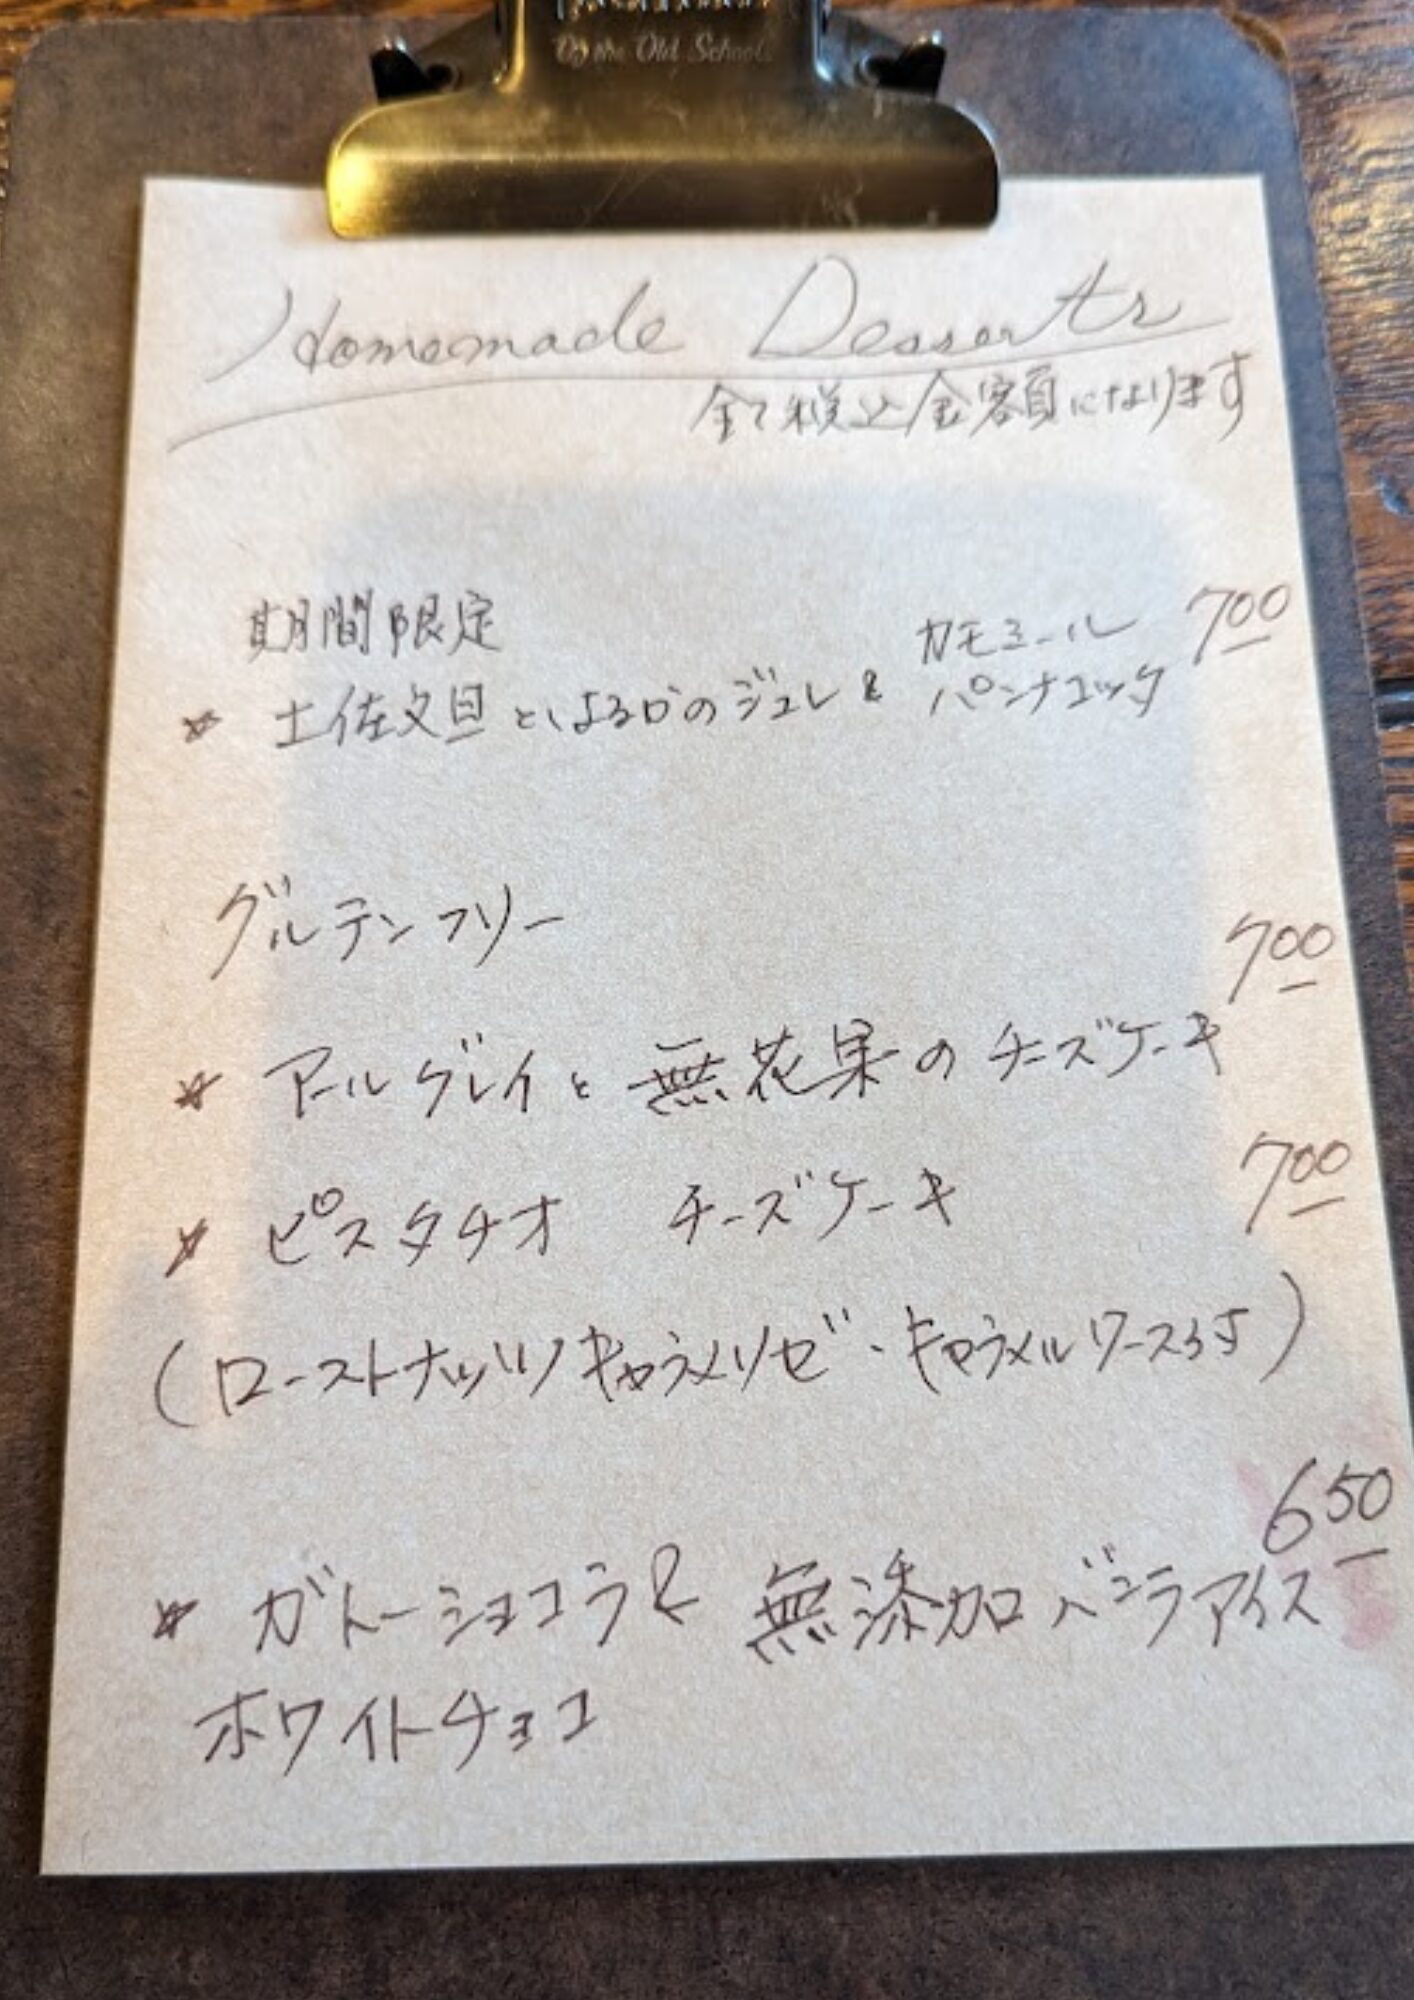 Of the Old School
Homemade Desserts
全て税込金額になります
期間限定
カモミール 700
* 土佐文旦とはるかのジュレ & パンナコッタ
グルテンフリー
700
* アールグレイと無花果のチーズケーキ
700
* ピスタチオ チーズケーキ
(ローストナッツ/キャラメリゼ・キャラメルソース)
650
* ガトーショコラ & 無添加バニラアイス
ホワイトチョコ